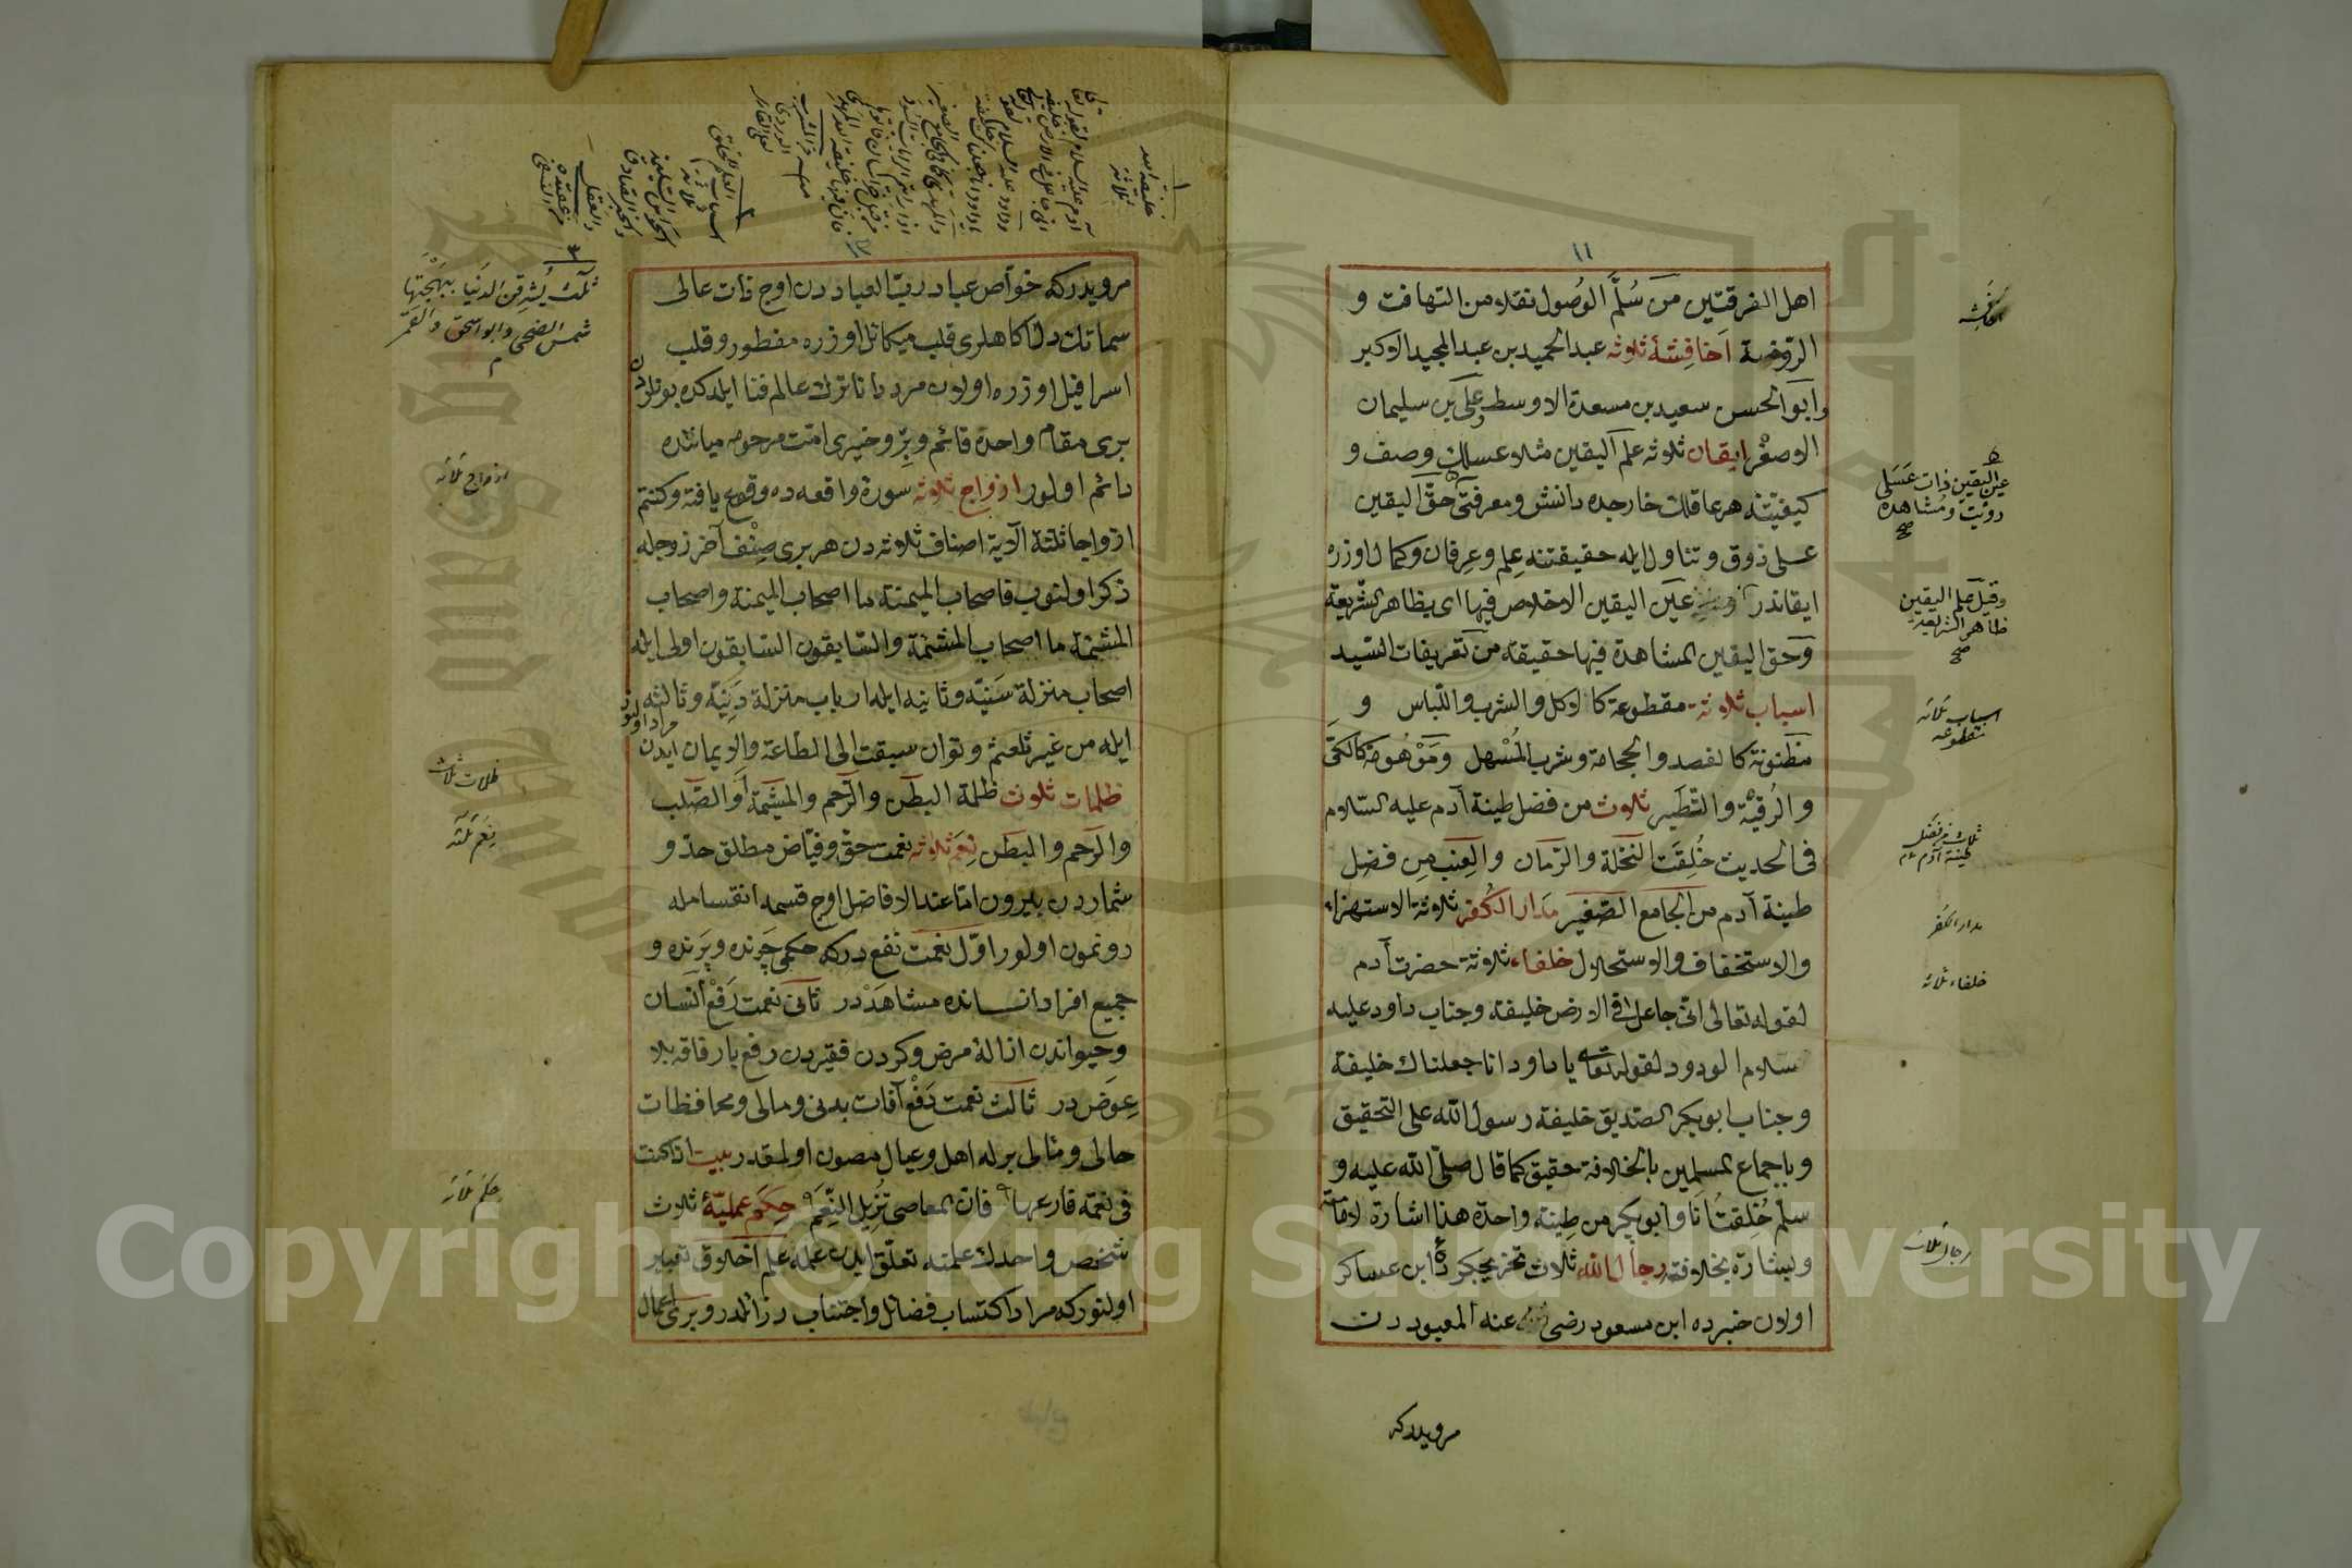 ١١
اهل الفرقتين من سُلَّم الوُصول نقلا من التهافت و
الروضة اَخافِشَة ثلاثه عبد الحميد بن عبد المجيد الاكبر
وابو الحسن سعيد بن مسعدة الاوسط وعلى بن سليمان
الاصغر ايقان ثلاثه علم اليقين مثلا عسلك وصف و
كيفيتنه هر عاقلك خارجده دانش ومعرفتى حق اليقين
عسلى ذوق وتناول ايله حقيقتنه عِلم وعِرفان وكمال اوزره
ايقاندر عين اليقين الاخلاص فيها اى بظاهر الشريعة
وحق اليقين المشاهدة فيها حقيقة من تعريفات السيد
اسباب ثلاثة مقطوعة كالاكل والشرب واللباس و
مظنونة كالفصد والحجامة وشرب المُسْهل ومَوْهُومة كالكَىّ
والرُقيَة والتطير ثلاث من فضل طينة آدم عليه السلام
فى الحديث خُلِقَت النخلة والرمان والعِنب مِن فضل
طينة آدم من الجامع الصغير مَدار الكُفر ثلاثة الاستهزاء
والاستخفاف والاستحلال خلفاء ثلاثة حضرت آدم
لقوله تعالى انى جاعل فى الارض خليفة وجناب داود عليه
سلام الودود لقوله تعالى يا داود انا جعلناك خليفة
وجناب ابو بكر الصديق خليفة رسول الله على التحقيق
وباجماع المسلمين بالخلافة حقيق كما قال صلى الله عليه و
سلم خُلِقتُ اَنا وابو بكر من طِينة واحدة هذا اشارة لامامته
وبشارة بخلافته رجال الله ثلاث تخريجكردۀ ابن عساكر
اولان خبرده ابن مسعود رضى عنه المعبود دن
مرويدركه
اخافشه
عين اليقين ذات عَسَلى
رؤيت ومُشاهده
صح
وقيل علم اليقين
ظاهر الشريعة
صح
اسباب ثلاثه
مقطوعه
ثلاث من فضل
طينة آدم
مدار الكفر
خلفاء ثلاثه
رجال ثلاث
مرويدركه خواص عباد ربّ العباد دن اوج ذات عالى
سماتك دل آكاهلرى قلب ميكائل اوزره مفطور وقلب
اسرافيل اوزره اولان مرد دانا ترك عالم فنا ايلدكده بونلردن
برى مقام واحده قائم وبِرّ وخيرى امت مرحومه مياننده
دائم اولور ازواج ثلاثه سورة واقعه ده وقوع يافته وكنتم
ازواجا ثلثة الآية اصناف ثلاثه دن هر برى صِنْف آخر زوجله
ذكر اولنوب فاصحاب الميمنة ما اصحاب الميمنة واصحاب
المشئمة ما اصحاب المشئمة والسابقون السابقون اولى ايله
اصحاب منزلة سَنِيّه وثانيه ايله ارباب منزلة دَنِيَّه وثالثه
ايله من غير تلعثم وتوان سبقت الى الطاعة والايمان ايدن مراد اولنور
ظلمات ثلاث ظلمة البطن والرحم والمشيمة أو الصلب
والرحم والبطن نِعَم ثلاثه نعمت حق وفياض مطلق حدّ و
شماردن بيرون اما عند الافاضل اوج قسمه انقسامله
رونمون اولور اوّل نعمت نفع دركه حكمى چَرنده وپَرنده و
جميع افراد انسانده مشاهَدْدر ثانى نعمت رَفْع انسان
وحيواندن ازالۀ مرض وكردن فقيردن رفع بار فاقه بلا
عِوَض در ثالث نعمت دَفْع آفات بدنى ومالى ومحافظات
حالى ومنالى برله اهل وعيال مصون اولمقدر بيت اذا كنت
فى نعمة فارعها ۹ فان المعاصى تزيل النِّعَم ۹ حِكَم عمليّۀ ثلاث
شخص واحدك علمنه تعلّق ايدن عمله علم اخلاق تعبير
اولنوركه مراد اكتساب فضائل واجتناب رذائلدر وبرى اعمال
خليفة الله
ثلاثة
اسباب العلم للخلق
ثلاثة
الحواس السليمة
والخبر الصادق
والعقل
من عقيدة
النسفى
ثلثة يُشرِقن الدنيا ببهجتها
شمس الضحى وابو اسحق والقمر
ازواج ثلاثه
ظلمات ثلاث
نِعَم ثلثه
حِكَم ثلاثه
Copyright © King Saud University
1957